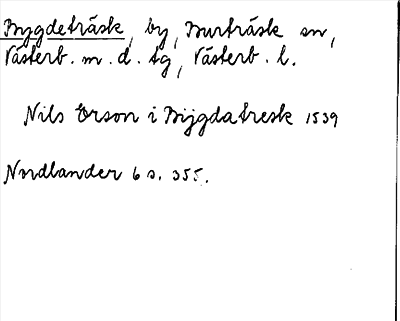 Bygdeträsk, by, Burträsk sn,
Västerb. m. d. tg, Västerb. l.
Nils Erson i Bijgdatresk 1539
Nordlander 6 s. 355.